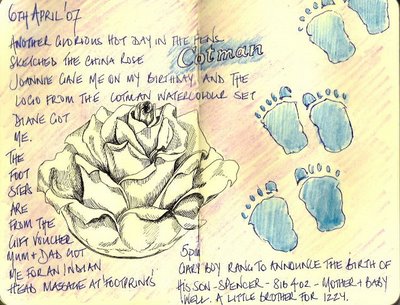 6TH APRIL '07
ANOTHER GLORIOUS HOT DAY IN THE FENS.
SKETCHED THE CHINA ROSE
JOANNIE GAVE ME ON MY BIRTHDAY AND THE
LOGO FROM THE COTMAN WATERCOLOUR SET
DIANE GOT
ME.
THE
FOOT
STEPS
ARE
FROM THE
GIFT VOUCHER
MUM & DAD GOT
ME FOR AN INDIAN
HEAD MASSAGE AT 'FOOTPRINTS'
Cotman
5pm
GARY BOY RANG TO ANNOUNCE THE BIRTH OF
HIS SON - SPENCER - 8lb 4oz - MOTHER & BABY
WELL. A LITTLE BROTHER FOR IZZY.